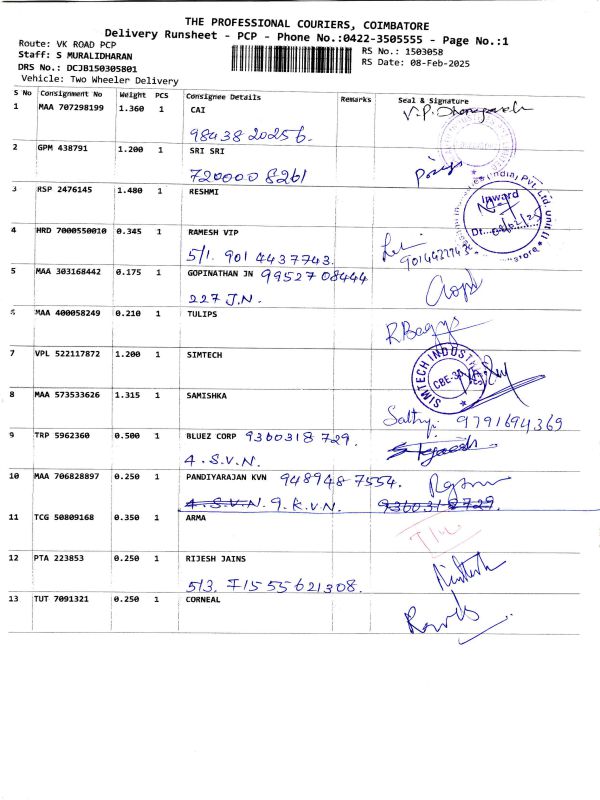 THE PROFESSIONAL COURIERS, COIMBATORE
Delivery Runsheet - PCP - Phone No.:0422-3505555 - Page No.:1
Route: VK ROAD PCP
Staff: S MURALIDHARAN
DRS No.: DCJB150305801
Vehicle: Two Wheeler Delivery
RS No.: 1503058
RS Date: 08-Feb-2025
S No Consignment No Weight PCS Consignee Details Remarks Seal & Signature
1 MAA 707298199 1.360 1 CAI
98438 20256.
2 GPM 438791 1.200 1 SRI SRI
720000 8261
3 RSP 2476145 1.480 1 RESHMI
(India) Pvt. Ltd. Unit II
Inward
4 HRD 7000550010 0.345 1 RAMESH VIP
5/1. 901 4437743.
9014437743
5 MAA 303168442 0.175 1 GOPINATHAN JN 99527 08444
227 J.N.
6 MAA 400058249 0.210 1 TULIPS
7 VPL 522117872 1.200 1 SIMTECH
SIMTECH INDUSTRIES
8 MAA 573533626 1.315 1 SAMISHKA
9791694369
9 TRP 5962360 0.500 1 BLUEZ CORP 9360318 729.
4.S.V.N.
10 MAA 706828897 0.250 1 PANDIYARAJAN KVN 948948 7554.
4.S.V.N. 9.K.V.N. 9360318729.
11 TCG 50809168 0.350 1 ARMA
12 PTA 223853 0.250 1 RIJESH JAINS
13 TUT 7091321 0.250 1 CORNEAL